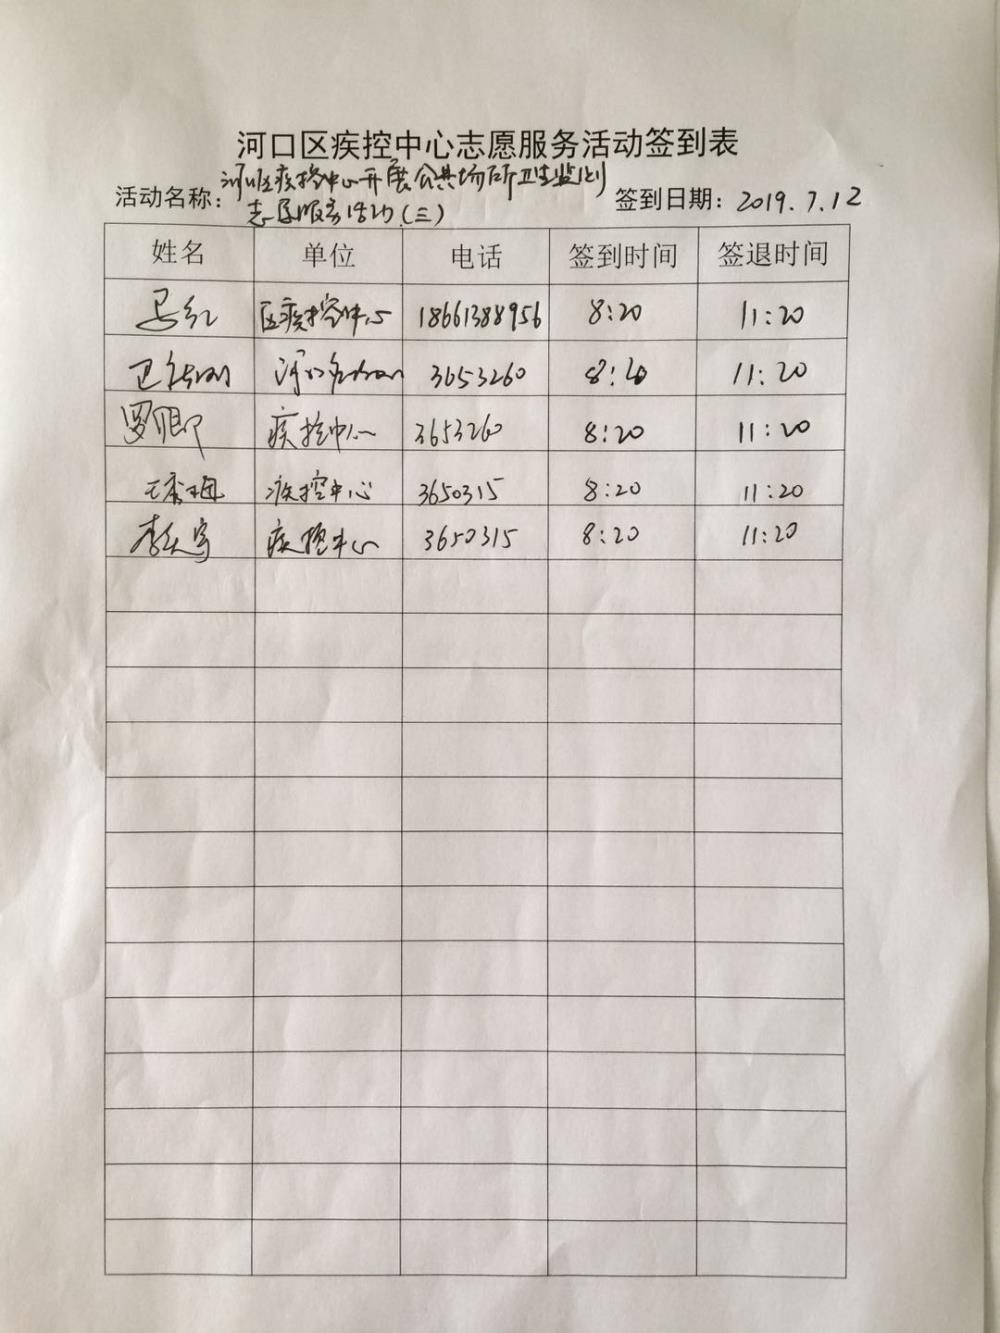 河口区疾控中心志愿服务活动签到表
活动名称：河口区疾控中心开展公共场所卫生监测 签到日期：2019.7.12
志愿服务活动（三）
姓名 单位 电话 签到时间 签退时间
区疾控中心 18661388956 8:20 11:20
河口 3653260 8:20 11:20
罗 疾控中心 3653260 8:20 11:20
王秀梅 疾控中心 3650315 8:20 11:20
李 疾控中心 3650315 8:20 11:20